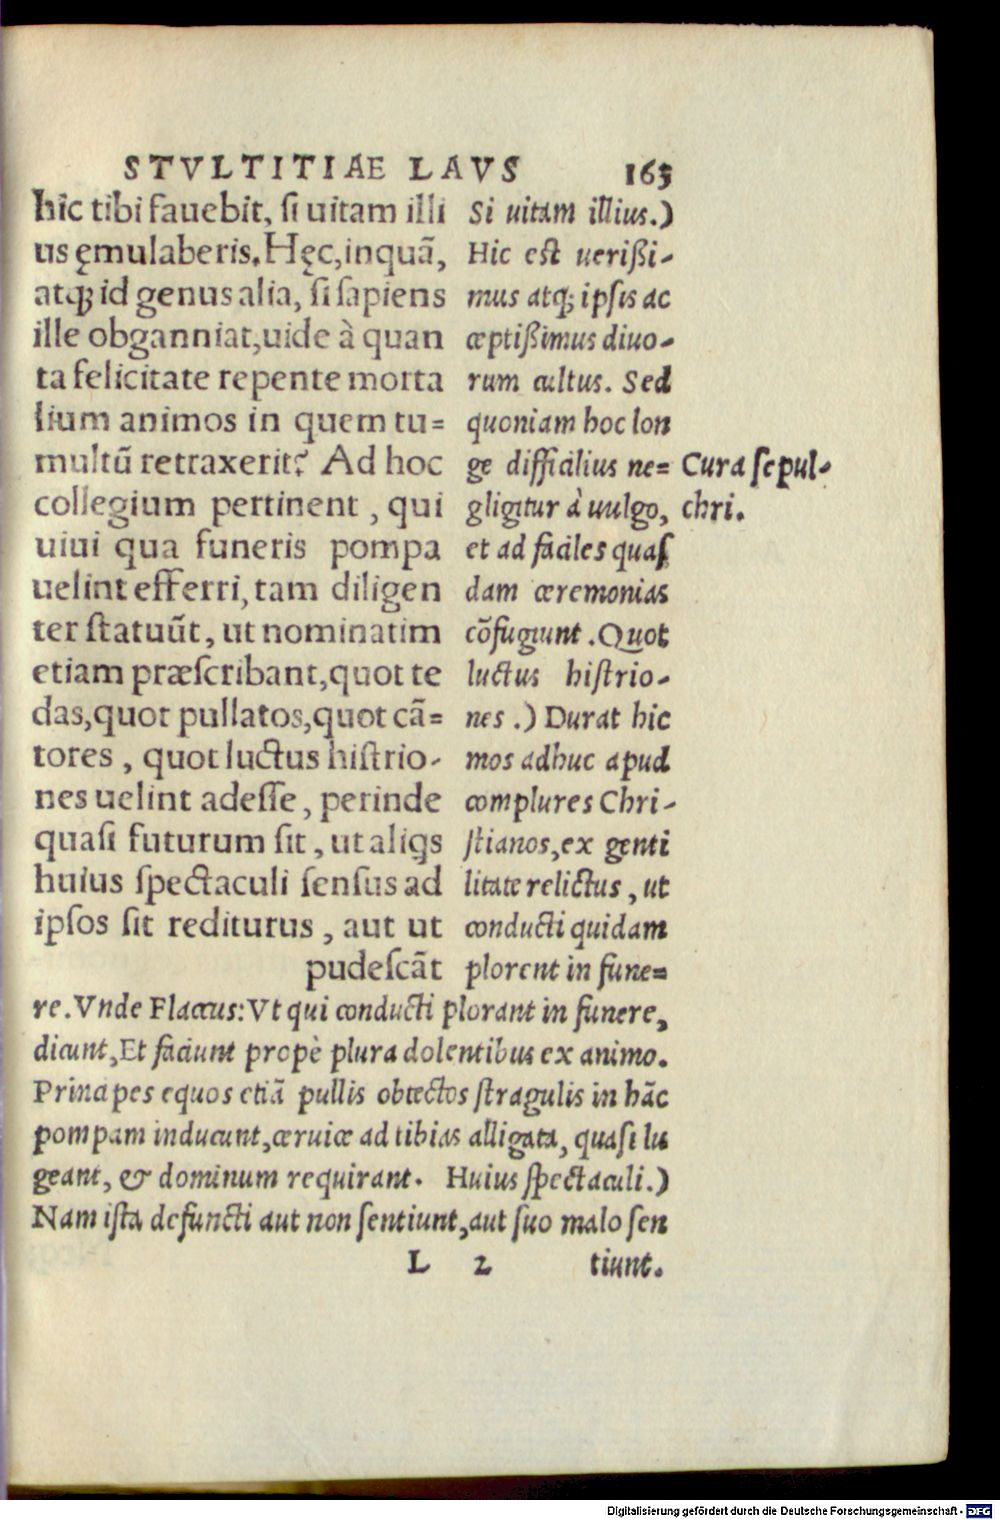 STVLTITIAE LAVS 163
hic tibi fauebit, si uitam illi
us ęmulaberis. Hęc, inquã,
atq; id genus alia, si sapiens
ille obganniat, uide à quan
ta felicitate repente morta
lium animos in quem tu=
multũ retraxerit? Ad hoc
collegium pertinent, qui
uiui qua funeris pompa
uelint efferri, tam diligen
ter statuũt, ut nominatim
etiam præscribant, quot te
das, quot pullatos, quot cã=
tores, quot luctus histrio-
nes uelint adesse, perinde
quasi futurum sit, ut aliqs
huius spectaculi sensus ad
ipsos sit rediturus, aut ut
pudescãt
Si uitam illius.)
Hic est uerißi-
mus atq; ipsis ac
ceptißimus diuo-
rum cultus. Sed
quoniam hoc lon
ge difficilius ne=
gligitur à uulgo,
et ad faciles quas
dam ceremonias
cõfugiunt. Quot
luctus histrio-
nes.) Durat hic
mos adhuc apud
complures Chri-
stianos, ex genti
litate relictus, ut
conducti quidam
plorent in fune=
Cura sepul-
chri.
re. Vnde Flaccus: Vt qui conducti plorant in funere,
dicunt, Et faciunt propè plura dolentibus ex animo.
Principes equos etiã pullis obtectos stragulis in hãc
pompam inducunt, ceruice ad tibias alligata, quasi lu
geant, & dominum requirant. Huius spectaculi.)
Nam ista defuncti aut non sentiunt, aut suo malo sen
L 2 tiunt.
Digitalisierung gefördert durch die Deutsche Forschungsgemeinschaft - DFG